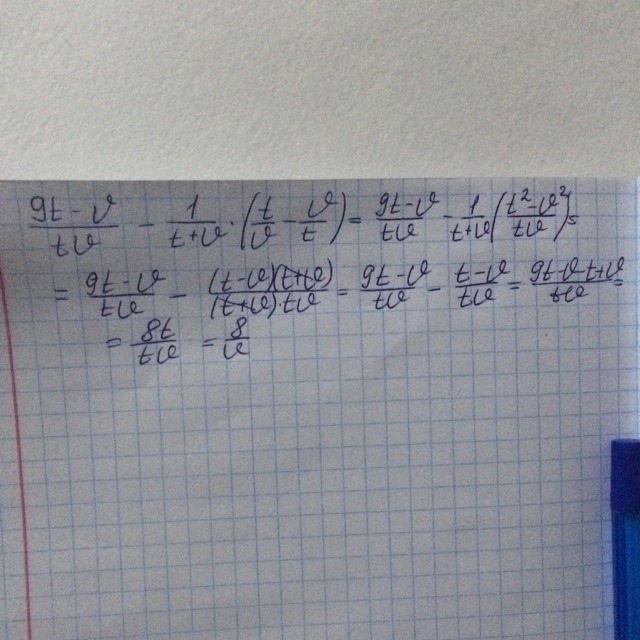 (9t-v)/(tv) - 1/(t+v) · (t/v - v/t) = (9t-v)/(tv) - 1/(t+v) ((t²-v²)/(tv)) =
= (9t-v)/(tv) - ((t-v)(t+v))/((t+v)tv) = (9t-v)/(tv) - (t-v)/(tv) = (9t-v-t+v)/(tv) =
= 8t/(tv) = 8/v